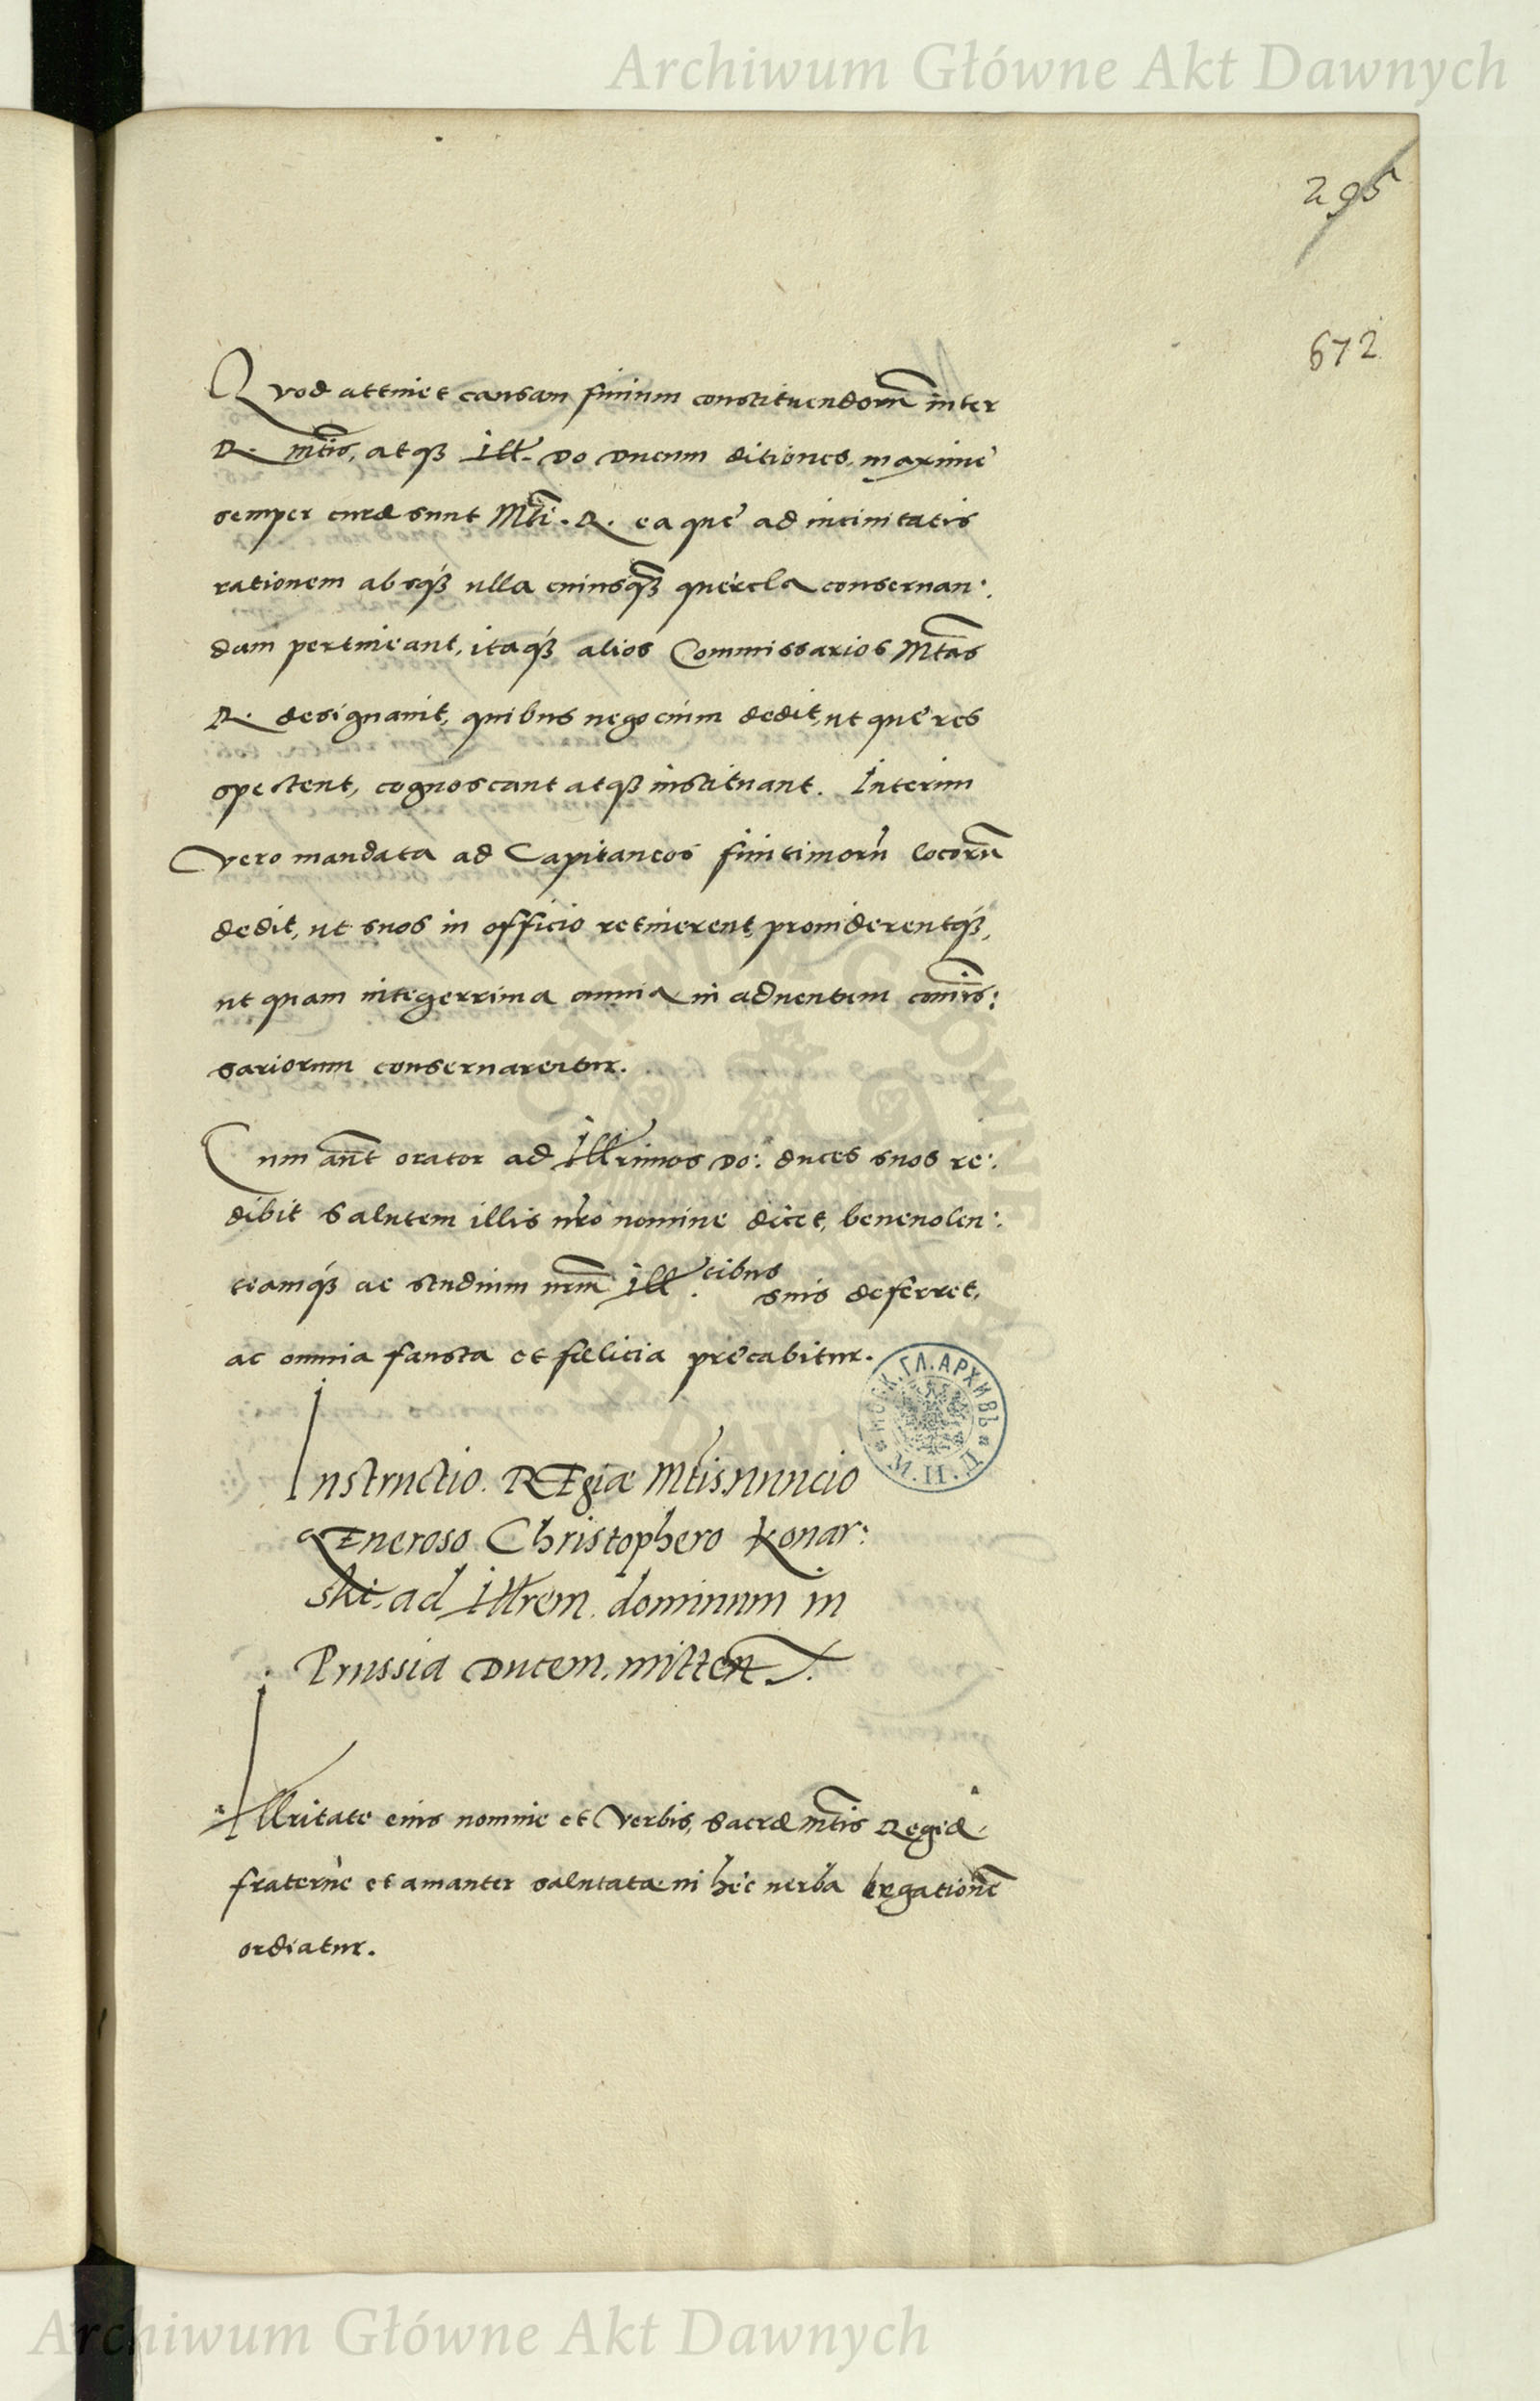 Archiwum Główne Akt Dawnych
295
672
Quod attinet causam finium constituendorũ inter
R. Mtis, atqꝫ Ill. Do Ducum ditiones, maxime
semper curæ sunt Mti. R. ea que ad uicinitatis
rationem absqꝫ ulla cuiusqꝫ querela conseruan:
dam pertineant, itaqꝫ alios Commissarios Mtas
R. designauit, quibus negocium dedit, ut que res
spectent, cognoscant atqꝫ instituant. Interim
vero mandata ad Capitaneos finitimorũ locorũ
dedit, ut suos in officio retinerent, prouiderentqꝫ,
ut quam integerrima omnia in aduentum comis:
sariorum conseruarentur.
Cum aũt orator ad Illrimos Do: duces suos re:
dibit Salutem illis nr̃o nomine dicet, beneuolen:
tiamqꝫ ac studium nr̃m Ill.tibus suis deferret,
ac omnia fausta et fælicia precabitur.
МОСК. ГЛ. АРХИВЪ * М. И. Д. *
Instructio. REgiæ Mtis nuncio
GEneroso Christophero Konar:
ski, ad Illrem. dominum in
Prussia Ducem. mitten.
Illritate eius nomine et verbis, Sacræ Mtis Regiæ
fraterne et amanter salutata in hec uerba legationẽ
ordiatur.
ARCHIWUM GŁÓWNE AKT DAWNYCH
Archiwum Główne Akt Dawnych